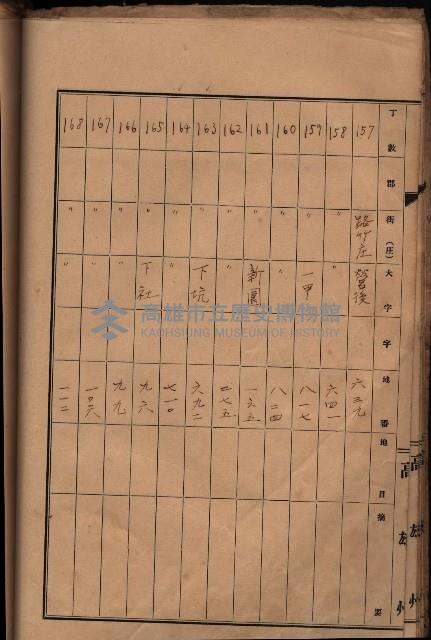 丁數 郡 街(庄) 大字 字 地番 地目 摘要
157 路竹庄 營後 六三九
158 〃 〃 六四一
159 〃 一甲 八一七
160 〃 〃 八二四
161 〃 新園 一六五
162 〃 〃 二七五
163 〃 下坑 六九二
164 〃 〃 七一〇
165 〃 下社 九六
166 〃 〃 九九
167 〃 〃 一〇六
168 〃 〃 一一二
高雄州
高雄市立歷史博物館
KAOHSIUNG MUSEUM OF HISTORY